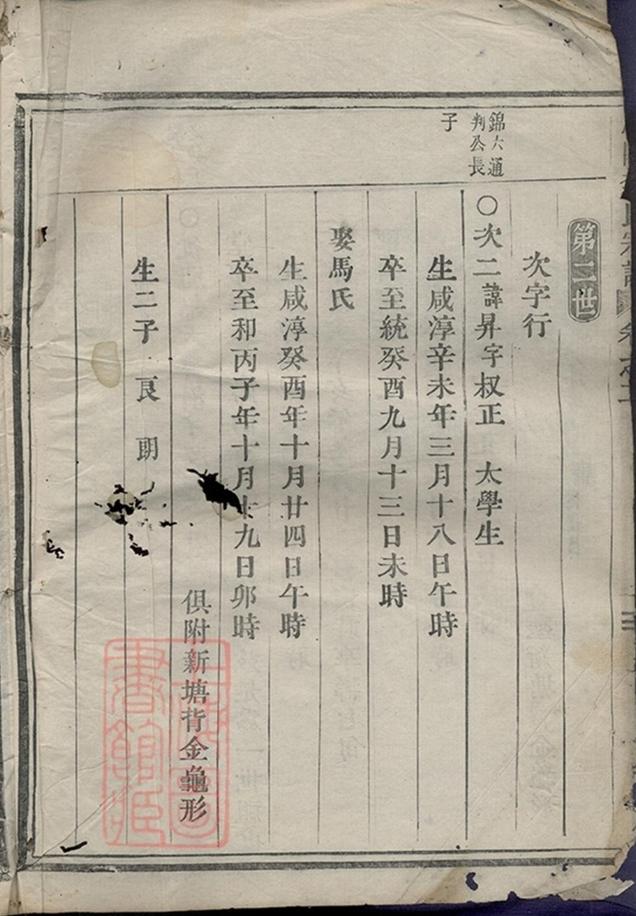 第二世
次字行
錦六通
判公長
子
○次二諱昇字叔正 太學生
生咸淳辛未年三月十八日午時
卒至統癸酉九月十三日未時
娶馬氏
生咸淳癸酉年十月廿四日午時
卒至和丙子年十月十九日卯時
俱附新塘背金龜形
生二子 良 朗